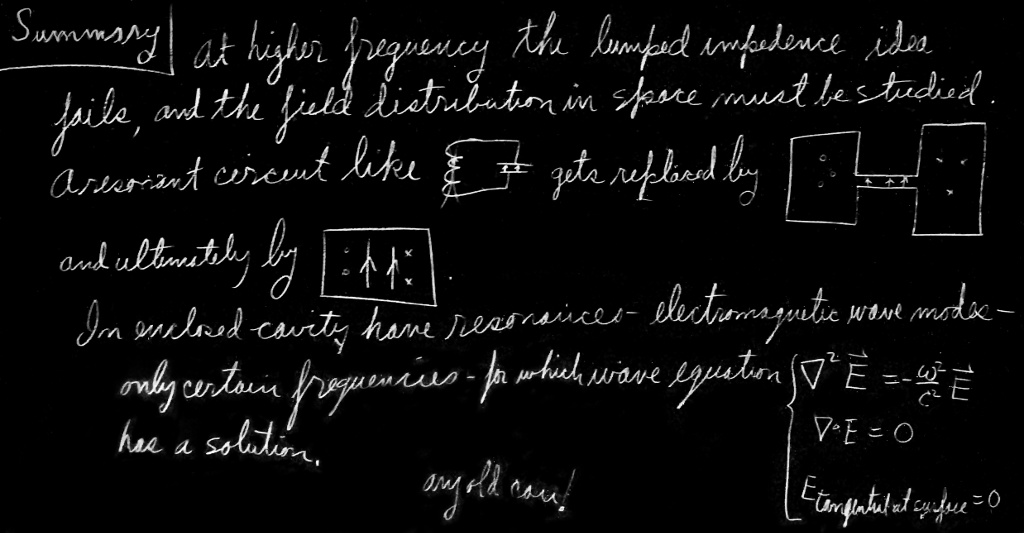 Summary at higher frequency the lumped impedence idea
fails, and the field distribution in space must be studied.
A resonant circuit like gets replaced by
and ultimately by .
In enclosed cavity have resonances - electromagnetic wave modes -
only certain frequencies - for which wave equation
has a solution.
∇² E⃗ = -ω²/c² E⃗
∇·E = 0
E tangential at surface = 0
any old can!